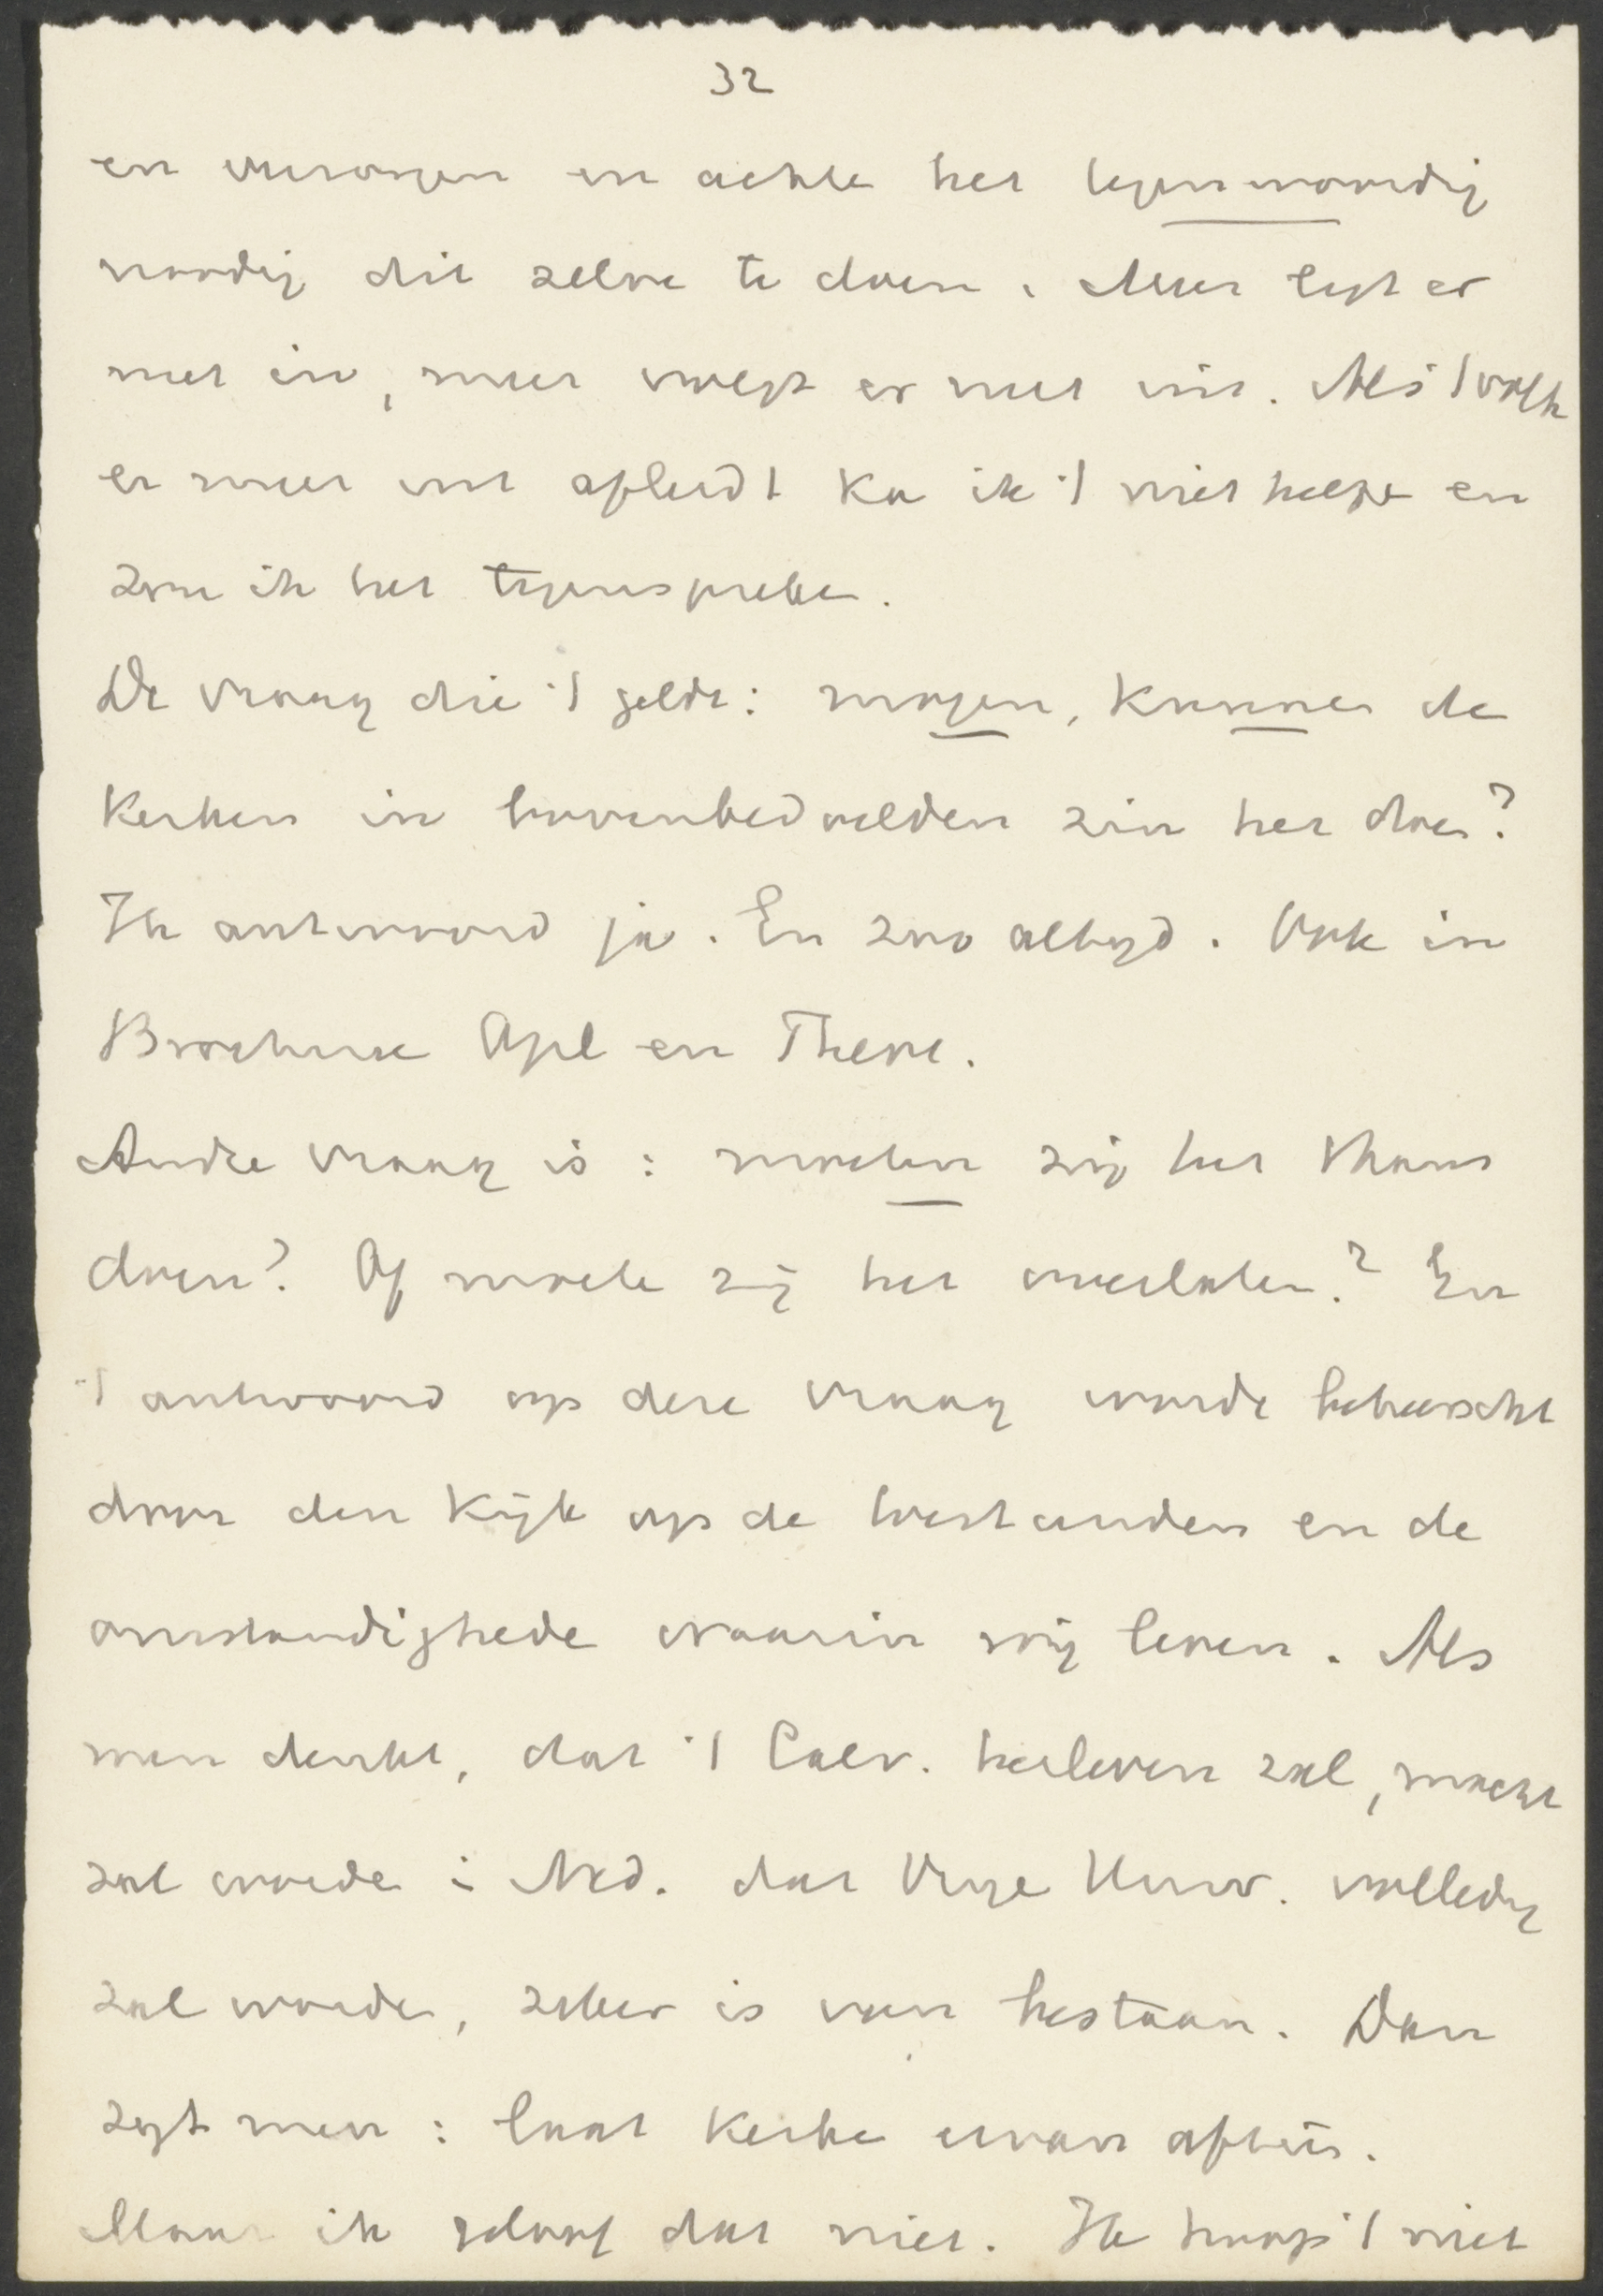 32
en vermogen en achtte het tegenwoordig
noodig dit zelve te doen. Meer ligt er
niet in, meer volgt er niet uit. Als 't volk
er meer uit afleidt kan ik 't niet helpe en
zou ik het tegenspreke.
De vraag die 't geldt: mogen, kunnen de
Kerken in bovenbedoelden zin het doen?
Ik antwoord ja. En zoo altyd. Ook in
Brochure Opl en Theol.
Andre vraag is: moeten zij het thans
doen? Of moete zij het overlaten? En
't antwoord op deze vraag wordt beheerscht
door den Kijk op de toestanden en de
omstandighede waarin wij leven. Als
men denkt, dat 't Calv. herleven zal, macht
zal worde i Ned. dat Vrye Univ. volledig
zal worde, zeker is van bestaan. Dan
zegt men: laat Kerke ervan afzien.
Maar ik geloof dat niet. Ik hoop 't niet